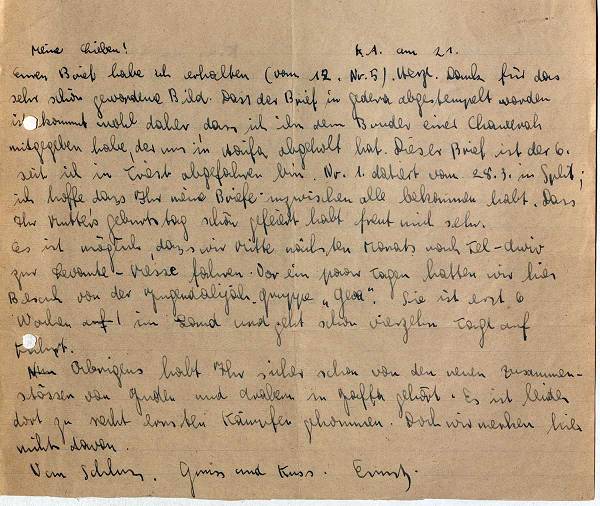 Meine Lieben! K.A. am 21.
Euren Brief habe ich erhalten (vom 12. Nr. 5). Herzl. Dank für das
sehr schön gewordene Bild. Dass der Brief in Gedera abgestempelt worden
ist kommt wohl daher, dass ich ihn dem Bruder eines Chawerah
mitgegeben habe, der uns in Haifa abgeholt hat. Dieser Brief ist der 6.
seit ich in Triest abgefahren bin. Nr. 1. datiert vom 28.3. in Split;
ich hoffe dass Ihr meine Briefe inzwischen alle bekommen habt. Dass
Ihr Mutters Geburtstag schön gefeiert habt freut mich sehr.
Es ist möglich, dass wir Mitte nächsten Monats nach Tel-Aviv
zur Levante-Messe fahren. Vor ein paar Tagen hatten wir hier
Besuch von der Jugendalijah-Gruppe „Gewa". Sie ist erst 6
Wochen im Land und geht schon vierzehn Tage auf
Fahrt.
Übrigens habt Ihr sicher schon von den neuen Zusammen-
stössen von Juden und Arabern in Jaffa gehört. Es ist leider
dort zu recht ernsten Kämpfen gekommen. Doch wir merken hier
nichts davon.
Zum Schluss, Gruss und Kuss. Ernst.